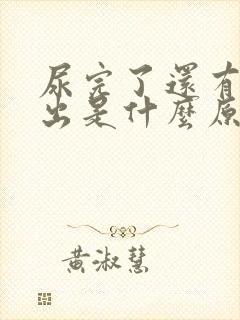 尿完了還有
出是什麼原
黃淑慧